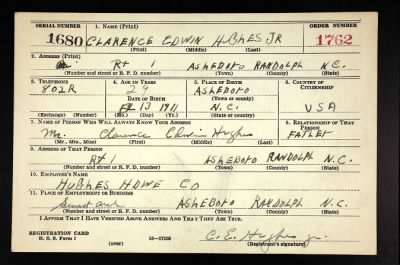 SERIAL NUMBER 1. NAME (Print) ORDER NUMBER
1680 CLARENCE EDWIN HUGHES JR 1762
(First) (Middle) (Last)
2. ADDRESS (Print)
Rt 1 ASHEBORO RANDOLPH N.C.
(Number and street or R. F. D. number) (Town) (County) (State)
3. TELEPHONE 4. AGE IN YEARS 5. PLACE OF BIRTH 6. COUNTRY OF CITIZENSHIP
802R 29 ASHEBORO
DATE OF BIRTH (Town or county)
13 1911 N.C. USA
(Exchange) (Number) (Mo.) (Day) (Yr.) (State or country)
7. NAME OF PERSON WHO WILL ALWAYS KNOW YOUR ADDRESS 8. RELATIONSHIP OF THAT PERSON
Mr. Clarence Edwin Hughes FATHER
(Mr., Mrs., Miss) (First) (Middle) (Last)
9. ADDRESS OF THAT PERSON
Rt 1 ASHEBORO RANDOLPH N.C.
(Number and street or R. F. D. number) (Town) (County) (State)
10. EMPLOYER'S NAME
HUGHES HDWE CO
11. PLACE OF EMPLOYMENT OR BUSINESS
ASHEBORO RANDOLPH N.C.
(Number and street or R. F. D. number) (Town) (County) (State)
I AFFIRM THAT I HAVE VERIFIED ABOVE ANSWERS AND THAT THEY ARE TRUE.
REGISTRATION CARD
D. S. S. Form 1 (over) C. E. Hughes Jr.
(Registrant's signature)